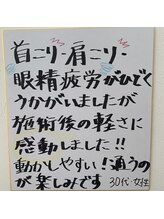 首こり・肩こり・
眼精疲労がひどく
うかがいましたが
施術後の軽さに
感動しました!!
動かしやすい!通うの
が楽しみです 30代・女性